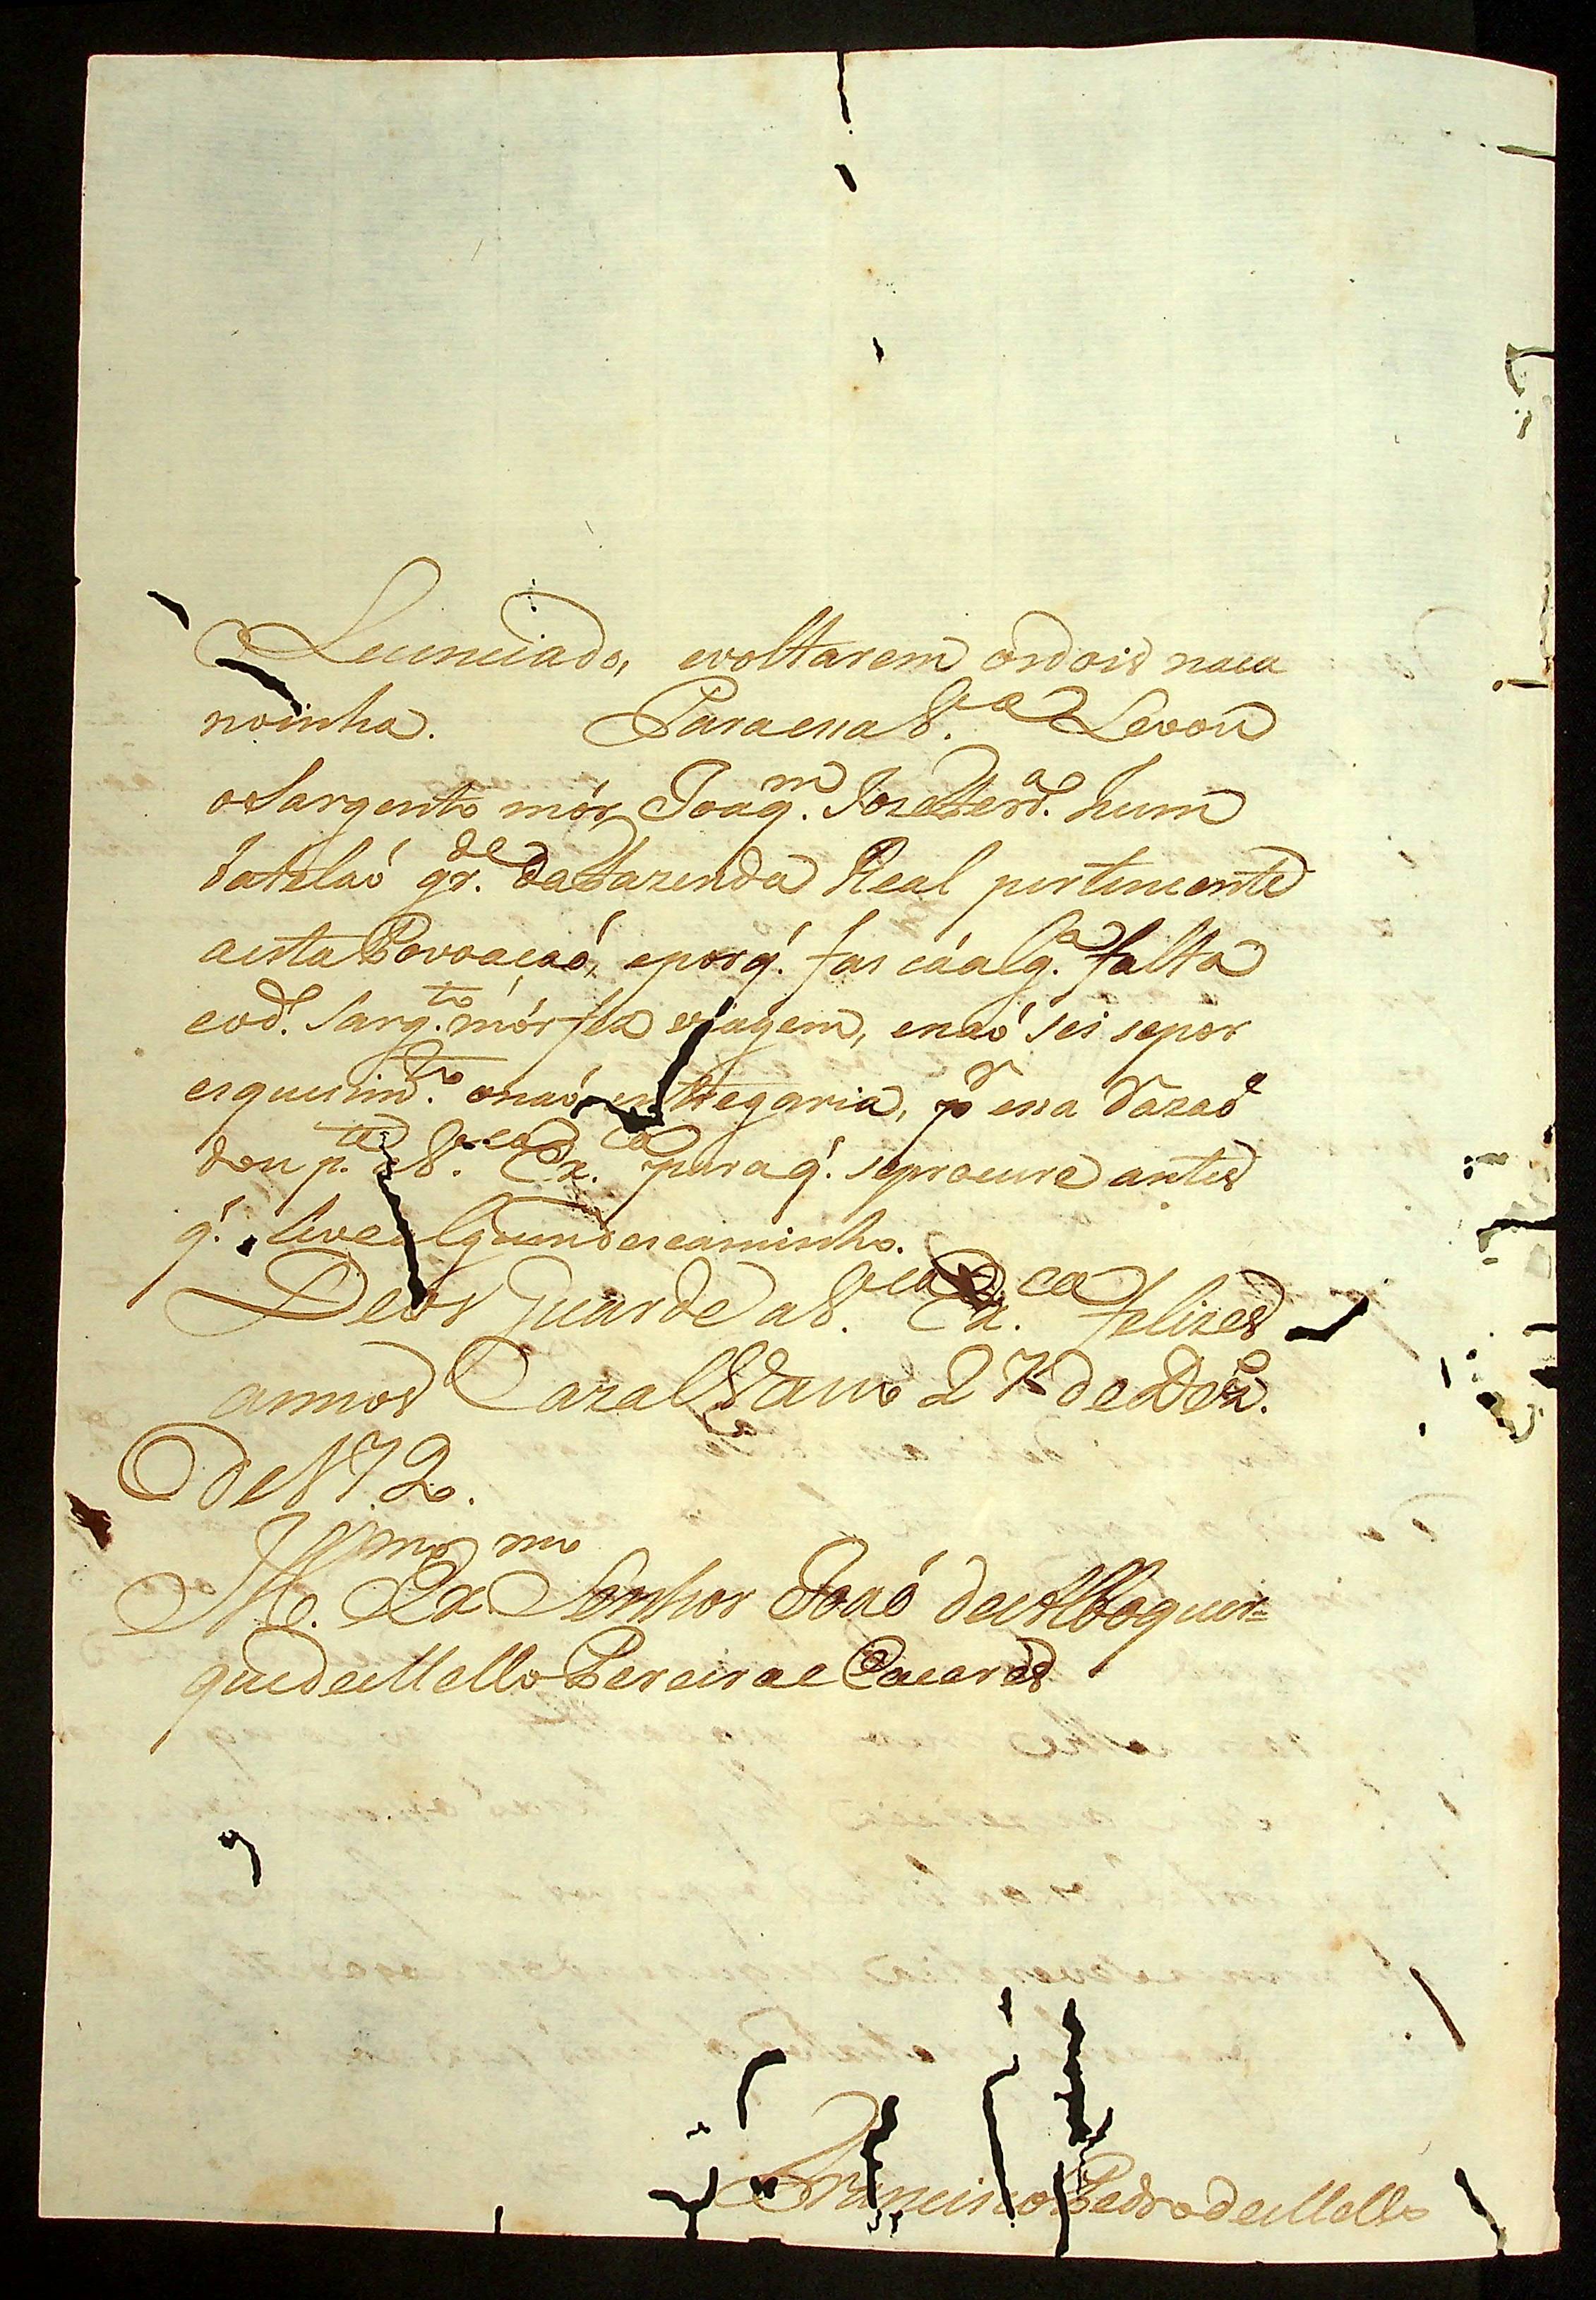 Licenciado, evoltarem osdois naca
noinha. Paraessa V.ª Levou
oSargento mór Joaq.m Joze Ferr.ª hum
batelaó gr.de daFazenda Real pertencente
aesta Povoaçaó, eporq́. fas cáalg.ª falta
eod.º Sarg.to mór fez viagem, enaó sei sepor
esquecim.to onaó entregaria, p.r essa Razaó
dou p.te a V.ca Ex.ca paraq́. seprocure antes
q́. leve algum descaminho.
Deos Guarde a V.ca Ex.ca felizes
annos Cazal Vasco 27 de Dez.º
de 1792.
Ill.mo Ex.mo Senhor Joaó de Alboquer=
que de Mello Pereira e Caceres
Francisco Pedro de Mello